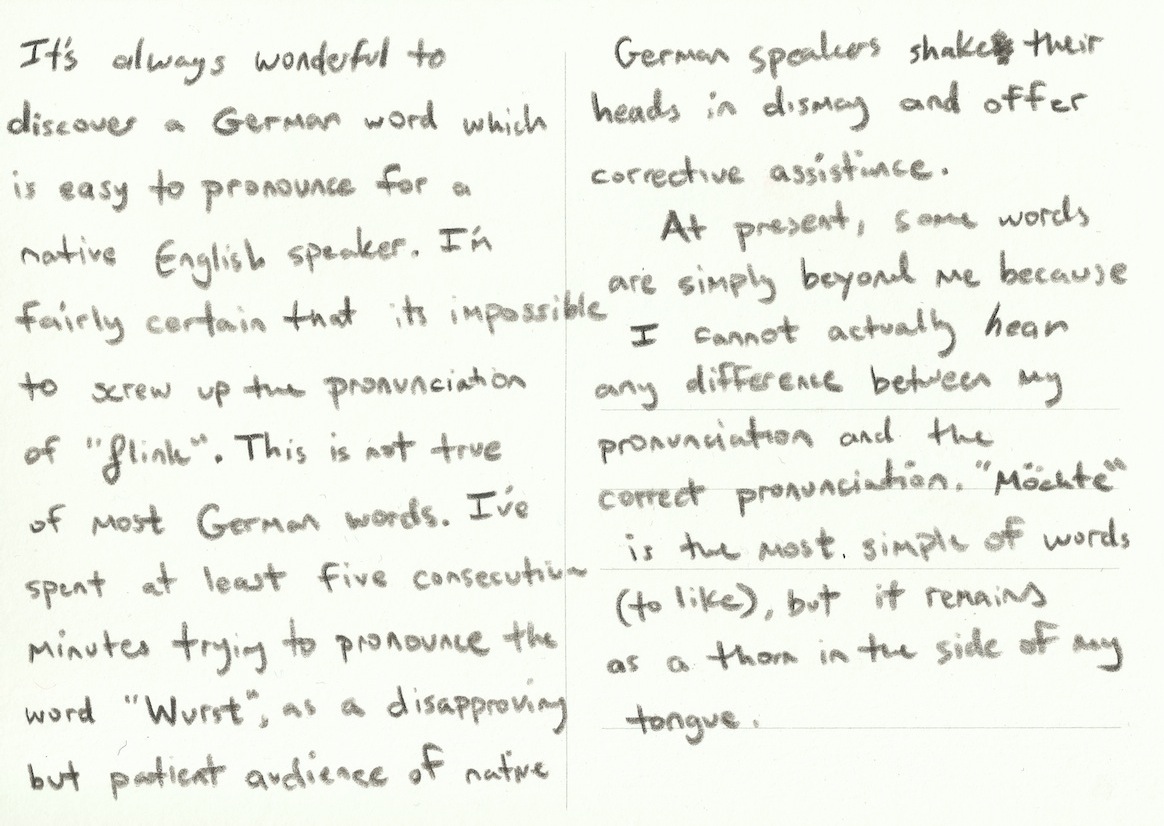 It's always wonderful to
discover a German word which
is easy to pronounce for a
native English speaker. I'm
fairly certain that its impossible
to screw up the pronunciation
of "flink". This is not true
of most German words. I've
spent at least five consecutive
minutes trying to pronounce the
word "Wurst", as a disapproving
but patient audience of native
German speakers shake their
heads in dismay and offer
corrective assistance.
At present, some words
are simply beyond me because
I cannot actually hear
any difference between my
pronunciation and the
correct pronunciation. "Möchte"
is the most simple of words
(to like), but it remains
as a thorn in the side of my
tongue.